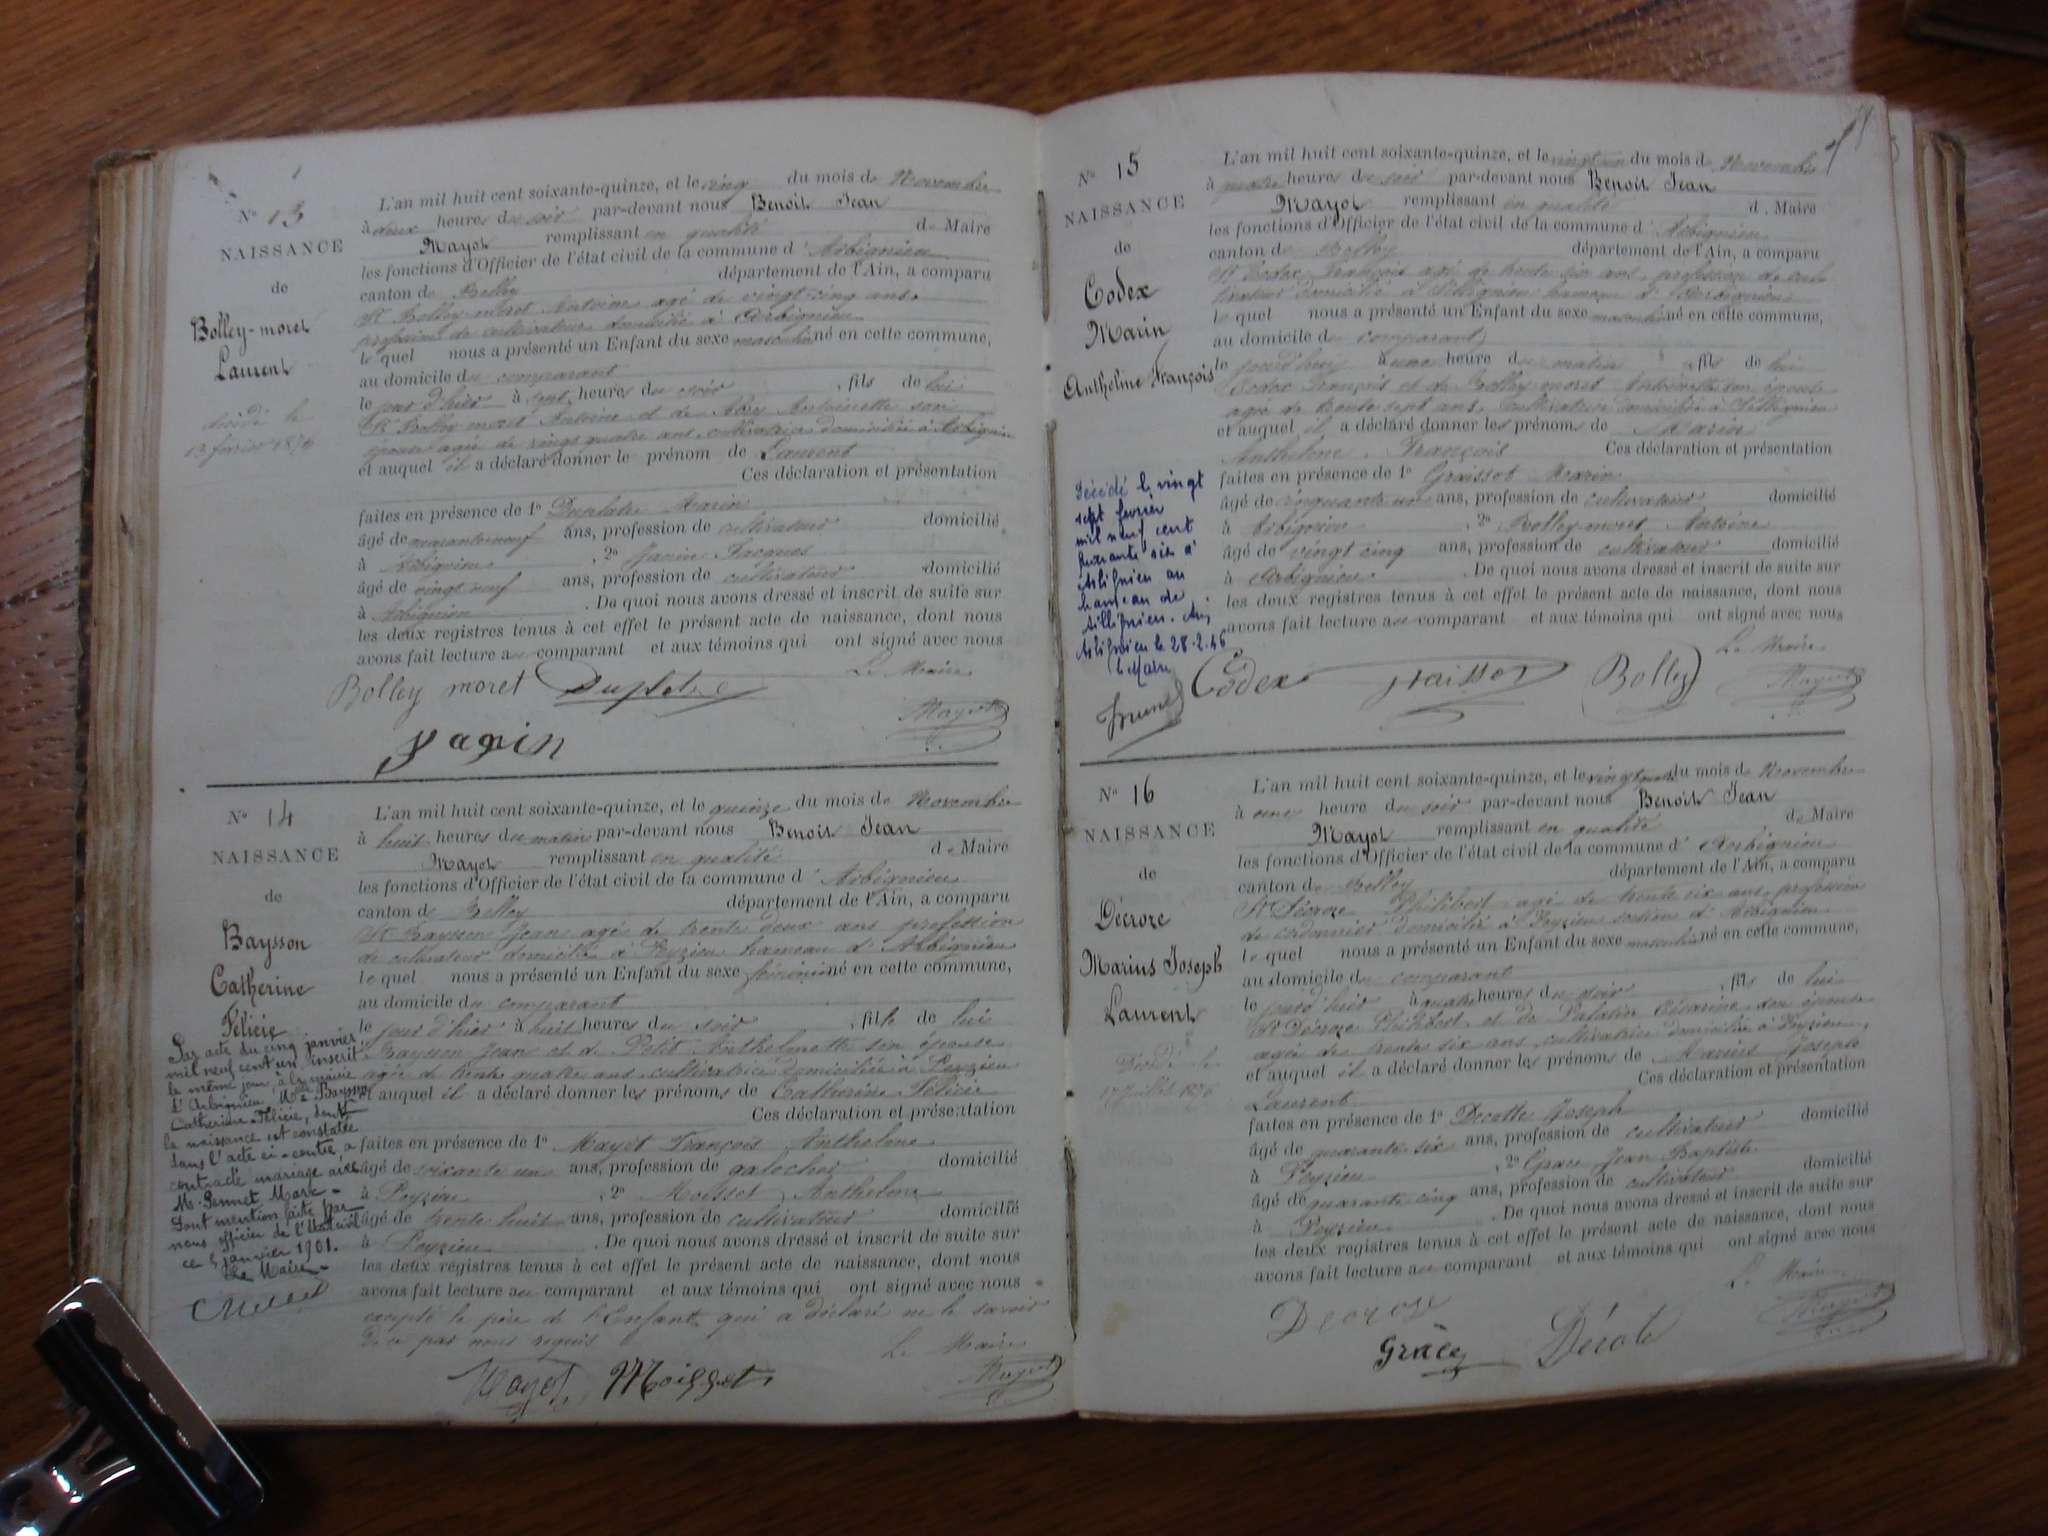 N° 13
NAISSANCE
de
Bolley-moret
Laurent
décédé le
13 février 1876
L'an mil huit cent soixante-quinze, et le cinq du mois de Novembre
à deux heures du soir par-devant nous Benoit Jean
Mayot remplissant en qualité de Maire
les fonctions d'Officier de l'état civil de la commune d'Arbignieu
canton de Belley département de l'Ain, a comparu
Sr Bolley-moret Antoine agé de vingt cinq ans,
profession de cultivateur domicilié à Arbignieu
le quel nous a présenté un Enfant du sexe masculin né en cette commune,
au domicile du comparant
le jour d'hier à sept heures du soir, fils de lui
Sr Bolley moret Antoine et de Antoinette son
épouse agée de vingt quatre ans, cultivatrice domiciliée à Arbignieu
et auquel il a déclaré donner le prénom de Laurent
Ces déclaration et présentation
faites en présence de 1° Duplatre Marin
âgé de quaranteneuf ans, profession de cultivateur domicilié
à Arbignieu, 2° Janin Jacques
âgé de vingt neuf ans, profession de cultivateur domicilié
à Arbignieu. De quoi nous avons dressé et inscrit de suite sur
les deux registres tenus à cet effet le présent acte de naissance, dont nous
avons fait lecture au comparant et aux témoins qui ont signé avec nous
Le Maire
Bolley moret Duplatre
Mayot
Janin
N° 14
NAISSANCE
de
Baysson
Catherine
Félicie
Par acte du cinq janvier
mil neuf cent un, inscrit
le même jour à la mairie
d'Arbignieu, Mlle Baysson
Catherine-Félicie, dont
la naissance est constatée
dans l'acte ci-contre, a
contracté mariage avec
M. Pennet Marc -
Dont mention faite par
nous officier de l'état civil
ce 5 janvier 1901.
Le Maire -
L'an mil huit cent soixante-quinze, et le quinze du mois de Novembre
à huit heures du matin par-devant nous Benoit Jean
Mayot remplissant en qualité de Maire
les fonctions d'Officier de l'état civil de la commune d'Arbignieu
canton de Belley département de l'Ain, a comparu
Sr Baysson Jean agé de trente deux ans profession
de cultivateur domicilié à Peyzieu hameau d'Arbignieu
le quel nous a présenté un Enfant du sexe féminin né en cette commune,
au domicile du comparant
le jour d'hier à huit heures du soir, fille de lui
Baysson Jean et de Petit Anthelmette son épouse
agée de trente quatre ans, cultivatrice domiciliée à Peyzieu
et auquel il a déclaré donner les prénoms de Catherine Félicie
Ces déclaration et présentation
faites en présence de 1° Mayot François Anthelme
âgé de soixante un ans, profession de galocher domicilié
à Peyzieu, 2° Moisset Anthelme
âgé de trente huit ans, profession de cultivateur domicilié
à Peyzieu. De quoi nous avons dressé et inscrit de suite sur
les deux registres tenus à cet effet le présent acte de naissance, dont nous
avons fait lecture au comparant et aux témoins qui ont signé avec nous
excepté le père de l'Enfant qui a déclaré ne le savoir
de ce par nous requis
Le Maire
Mayot Moisset
Mayot
N° 15
NAISSANCE
de
Codex
Marin
Anthelme François
Décédé le vingt
sept février
mil neuf cent
quarante six à
Arbignieu au
hameau de
Sillignieu.
Arbignieu le 28-2-46
Le Maire
L'an mil huit cent soixante-quinze, et le vingt un du mois de Novembre
à quatre heures du soir par-devant nous Benoit Jean
Mayot remplissant en qualité de Maire
les fonctions d'Officier de l'état civil de la commune d'Arbignieu
canton de Belley département de l'Ain, a comparu
Sr Codex François agé de trente six ans, profession de cul
tivateur domicilié à Sillignieu hameau d'Arbignieu
le quel nous a présenté un Enfant du sexe masculin né en cette commune,
au domicile du comparant
le jourd'huy à une heure du matin, fils de lui
Codex François et de Bolley moret Antoinette son épouse
agée de trente sept ans, cultivatrice domiciliée à Sillignieu
et auquel il a déclaré donner les prénoms de Marin
Anthelme François Ces déclaration et présentation
faites en présence de 1° Graisset Marin
âgé de cinquante un ans, profession de cultivateur domicilié
à Arbignieu, 2° Bolley-moret Antoine
âgé de vingt cinq ans, profession de cultivateur domicilié
à Arbignieu. De quoi nous avons dressé et inscrit de suite sur
les deux registres tenus à cet effet le présent acte de naissance, dont nous
avons fait lecture au comparant et aux témoins qui ont signé avec nous
Le Maire
Codex Bolley
Mayot
N° 16
NAISSANCE
de
Décroze
Marius Joseph
Laurent
Décédé le
17 Juillet 1876
L'an mil huit cent soixante-quinze, et le vingt quatre du mois de Novembre
à une heure du soir par-devant nous Benoit Jean
Mayot remplissant en qualité de Maire
les fonctions d'Officier de l'état civil de la commune d'Arbignieu
canton de Belley département de l'Ain, a comparu
Sr Décroze Philibert agé de trente six ans, profession
de cordonnier domicilié à Peyzieu section d'Arbignieu
le quel nous a présenté un Enfant du sexe masculin né en cette commune,
au domicile du comparant
le jour d'hier à quatre heures du soir, fils de lui
Sr Décroze Philibert et de son épouse
agée de trente six ans, cultivatrice domiciliée à Peyzieu,
et auquel il a déclaré donner les prénoms de Marius Joseph
Laurent Ces déclaration et présentation
faites en présence de 1° Decotte Joseph
âgé de quarante six ans, profession de cultivateur domicilié
à Peyzieu, 2° Grace Jean Baptiste
âgé de quarante cinq ans, profession de cultivateur domicilié
à Peyzieu. De quoi nous avons dressé et inscrit de suite sur
les deux registres tenus à cet effet le présent acte de naissance, dont nous
avons fait lecture au comparant et aux témoins qui ont signé avec nous
Le Maire
Decroze
Grâce
Mayot